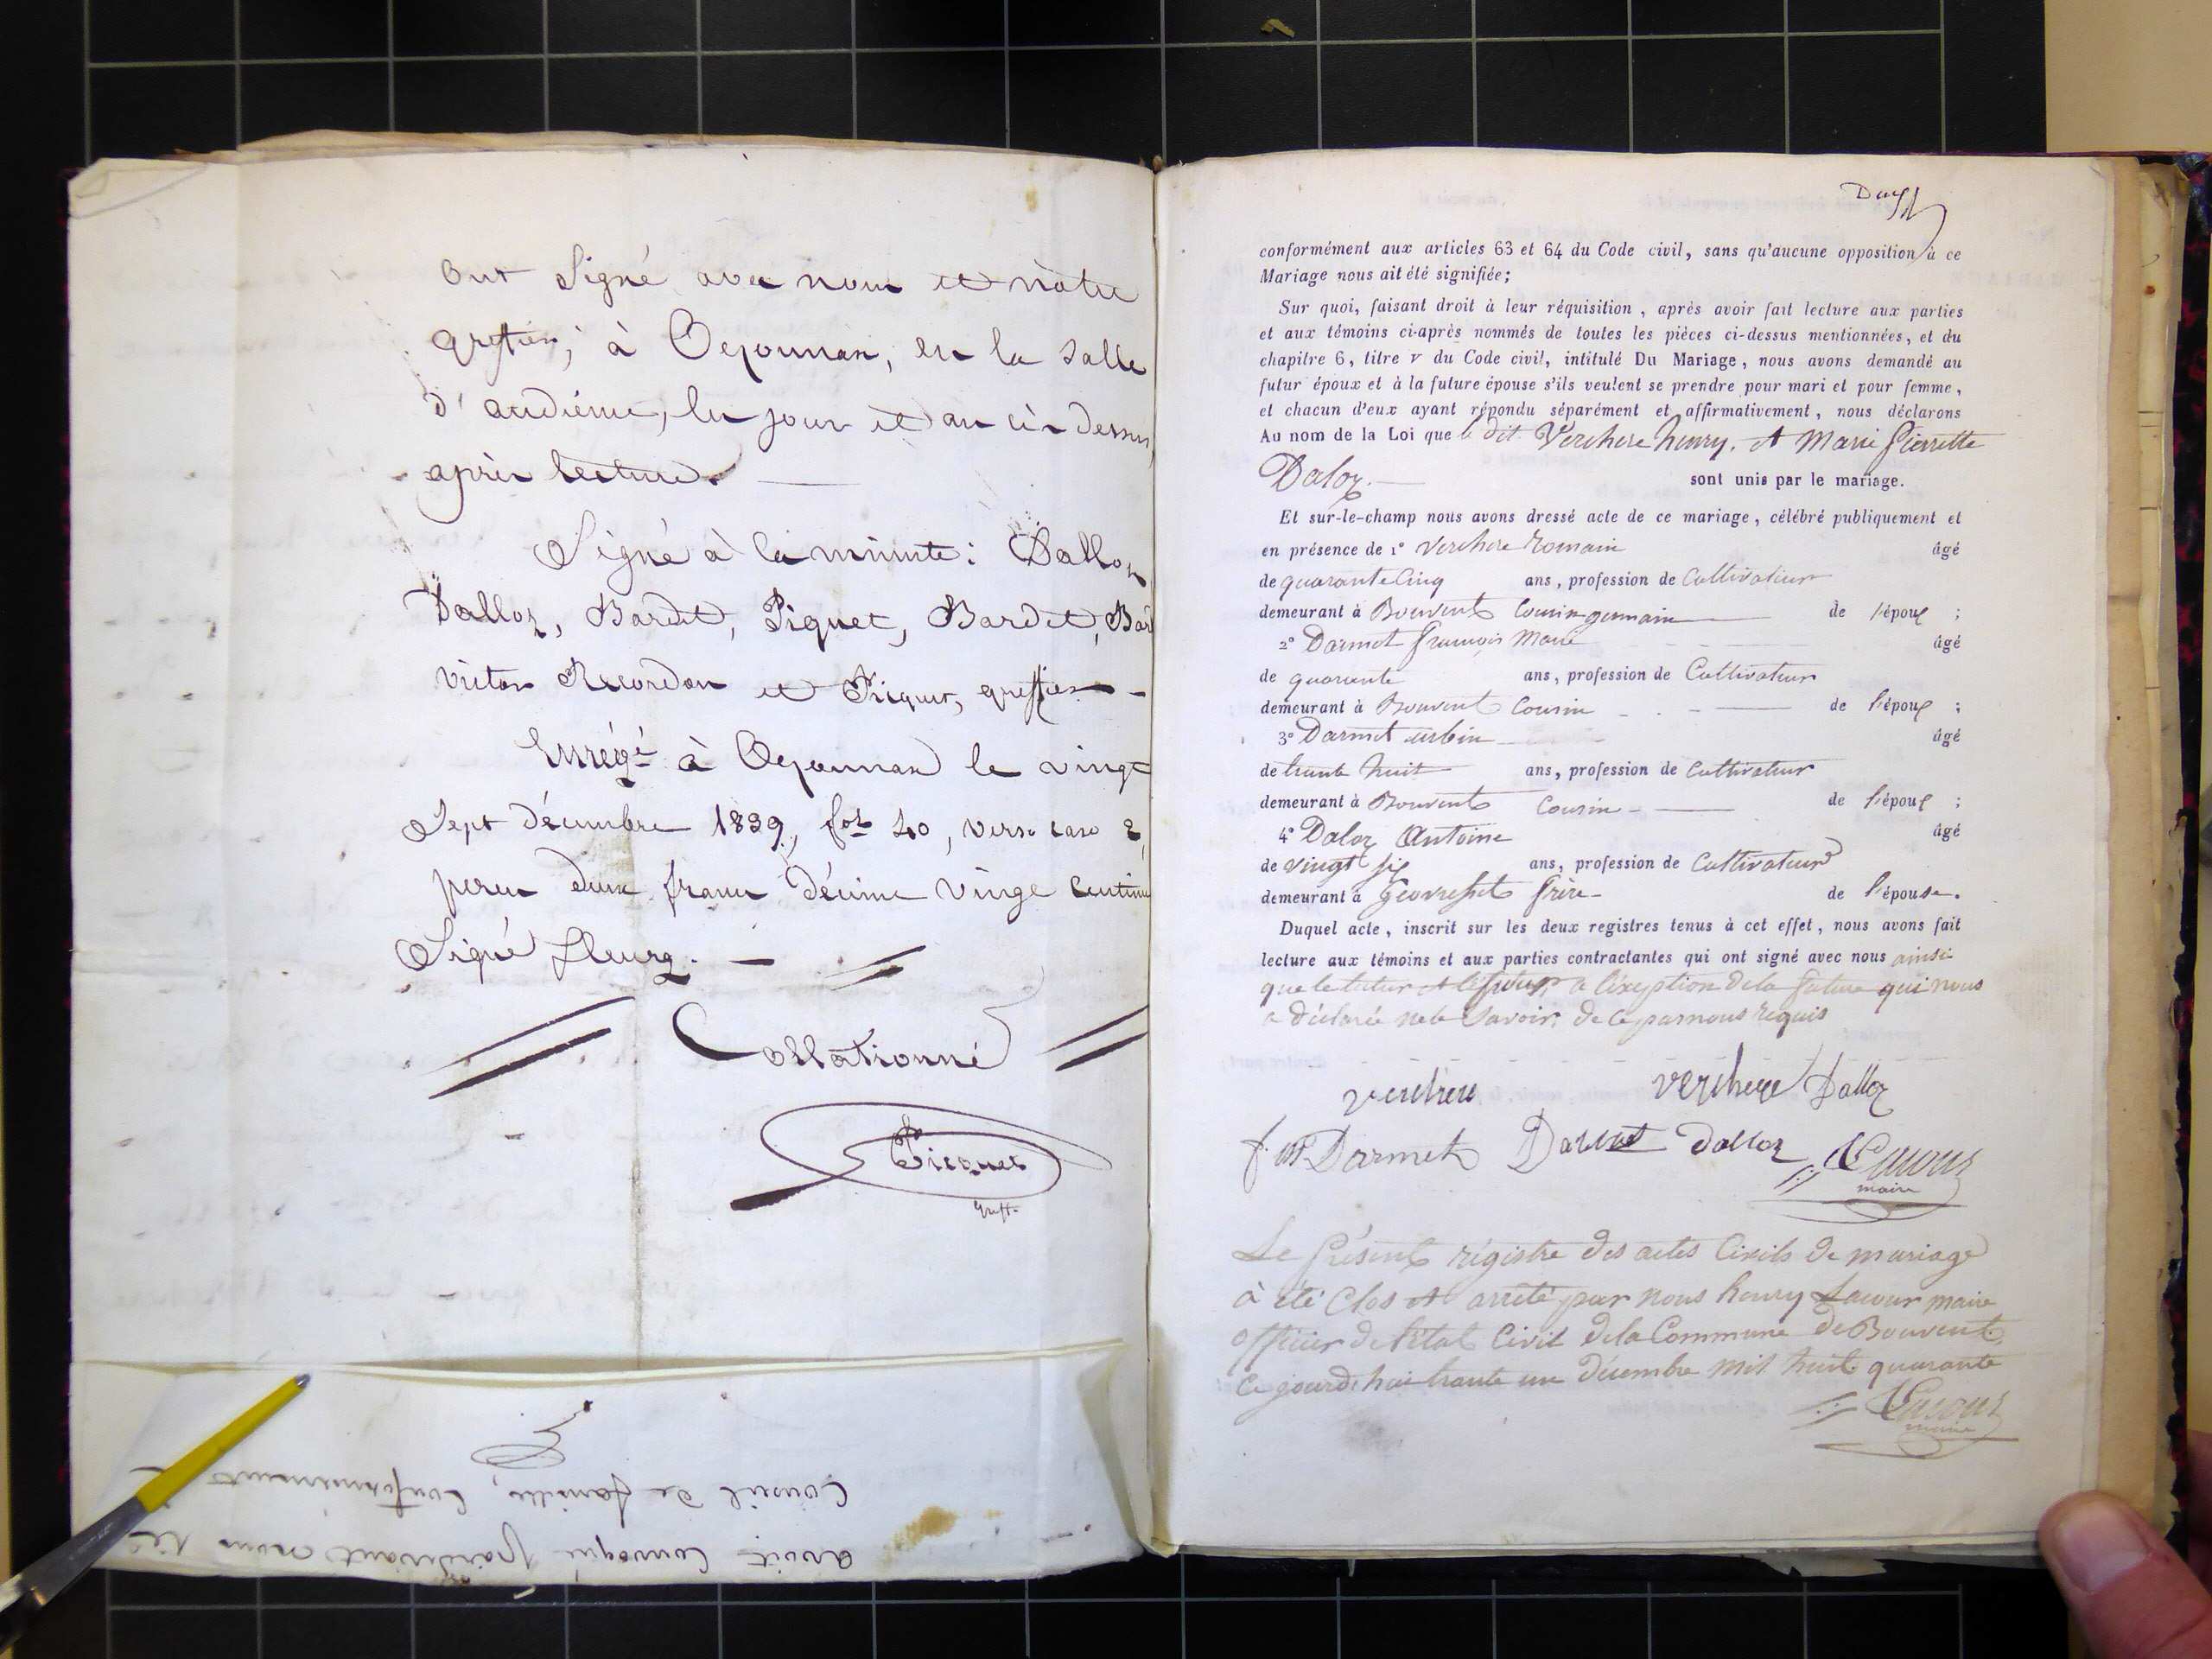 ont signé avec nous et nôtre
greffier, à Oyonnax, en la salle
d'audience, les jour et an ci-dessus,
après lecture.
Signé à la minute: Dalloz
Dalloz, Bardet, Piquet, Bardet, Bar
victor Recordon et Picquet, greffier
Enrégé à Oyonnax le vingt
Sept décembre 1839, fol 40, verso case 2,
perçu deux francs décime vingt centimes
Signé fleury.
Collationné
Picquet
Greff.
conseil de famille, conformément
avoit convoqué pardevant nous le
conformément aux articles 63 et 64 du Code civil, sans qu'aucune opposition à ce
Mariage nous ait été signifiée;
Sur quoi, faisant droit à leur réquisition, après avoir fait lecture aux parties
et aux témoins ci-après nommés de toutes les pièces ci-dessus mentionnées, et du
chapitre 6, titre v du Code civil, intitulé Du Mariage, nous avons demandé au
futur époux et à la future épouse s'ils veulent se prendre pour mari et pour femme,
et chacun d'eux ayant répondu séparément et affirmativement, nous déclarons
Au nom de la Loi que le dit Verchere henry. et Marie Pierrette
Daloz. sont unis par le mariage.
Et sur-le-champ nous avons dressé acte de ce mariage, célébré publiquement et
en présence de 1° Verchere Romain âgé
de quarante Cinq ans, profession de Cultivateur
demeurant à Bouvent Cousin germain de l'époux ;
2° Darmet francois Marie âgé
de quarente ans, profession de Cultivateur
demeurant à Bouvent Cousin de l'époux ;
3° Darmet urbin âgé
de trente huit ans, profession de Cultivateur
demeurant à Bouvent Cousin de l'époux ;
4° Daloz Antoine âgé
de vingt six ans, profession de Cultivateur
demeurant à Geovresset frère de l'épouse.
Duquel acte, inscrit sur les deux registres tenus à cet effet, nous avons fait
lecture aux témoins et aux parties contractantes qui ont signé avec nous ainsi
que le tutur et le futur a l'éxeption de la future qui nous
a déclarée ne le Savoir, de ce par nous requis
verchere verchere Dalloz
f. m Darmet Darmet dalloz Lacour
maire
Le Présent régistre des actes Civils de mariage
à été Clos et arrêté par nous henry Lacour maire
officier de l'état Civil de la Commune de Bouvent,
Ce jourd'hui trante un Décembre mil huit quarante
Lacour
maire